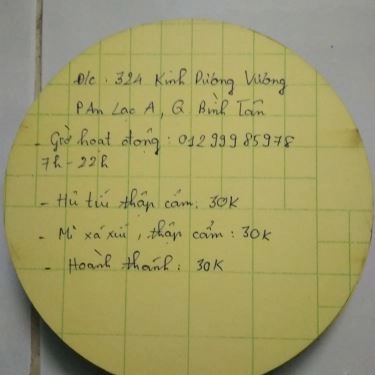 Đ/c . 324 Kinh Dương Vương
P An Lạc A, Q Bình Tân
- Giờ hoạt động : 01299985978
7h - 22h
- Hủ tiú thập cẩm : 30K
- Mì xá xíú, thập cẩm : 30K
- Hoành thánh : 30K